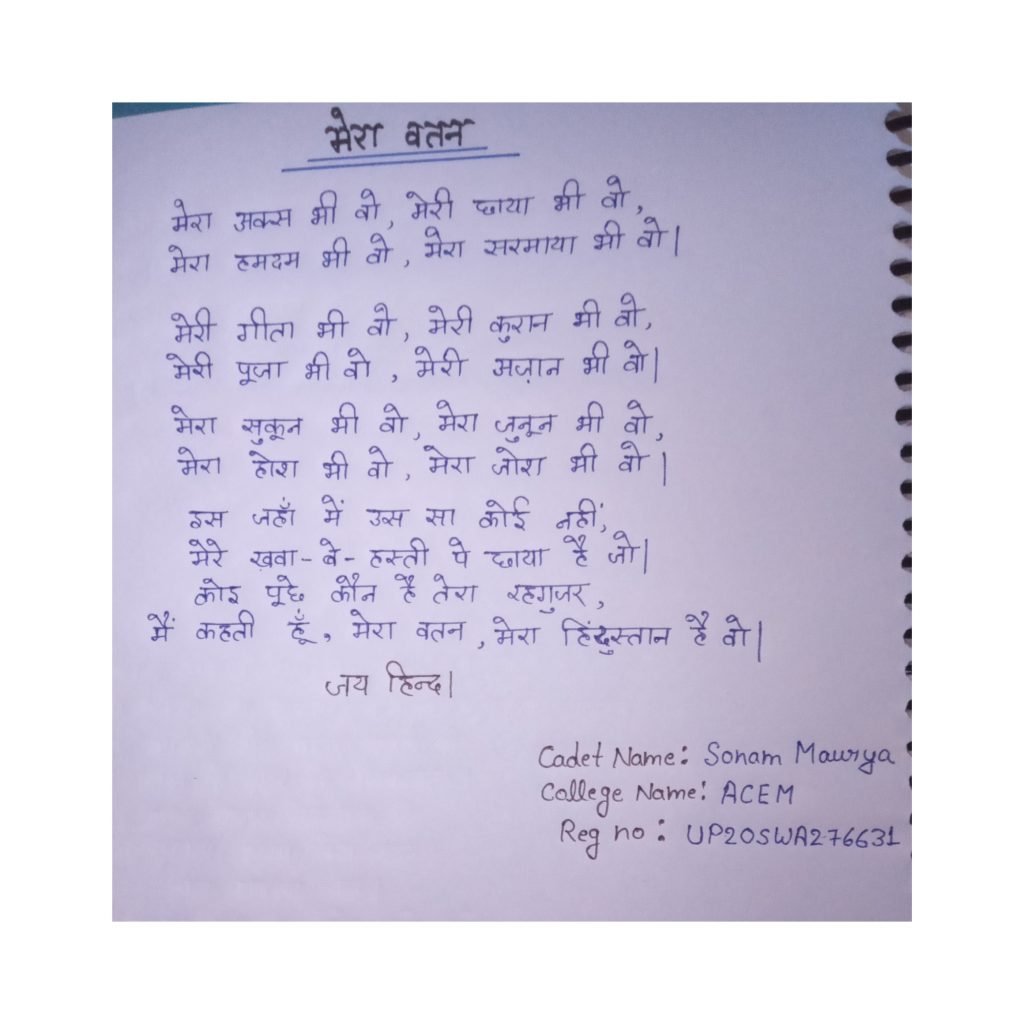 मेरा वतन
मेरा अक्स भी वो, मेरी छाया भी वो,
मेरा हमदम भी वो, मेरा सरमाया भी वो।
मेरी गीता भी वो, मेरी कुरान भी वो,
मेरी पूजा भी वो, मेरी अज़ान भी वो।
मेरा सुकून भी वो, मेरा जुनून भी वो,
मेरा होश भी वो, मेरा जोश भी वो।
इस जहाँ में उस सा कोई नहीं,
मेरे ख़्वा-बे-हस्ती पे छाया है जो।
कोइ पूछे कौन है तेरा रहगुजर,
मैं कहती हूँ, मेरा वतन, मेरा हिंदुस्तान है वो।
जय हिन्द।
Cadet Name: Sonam Maurya
College Name: ACEM
Reg no: UP20SWA276631